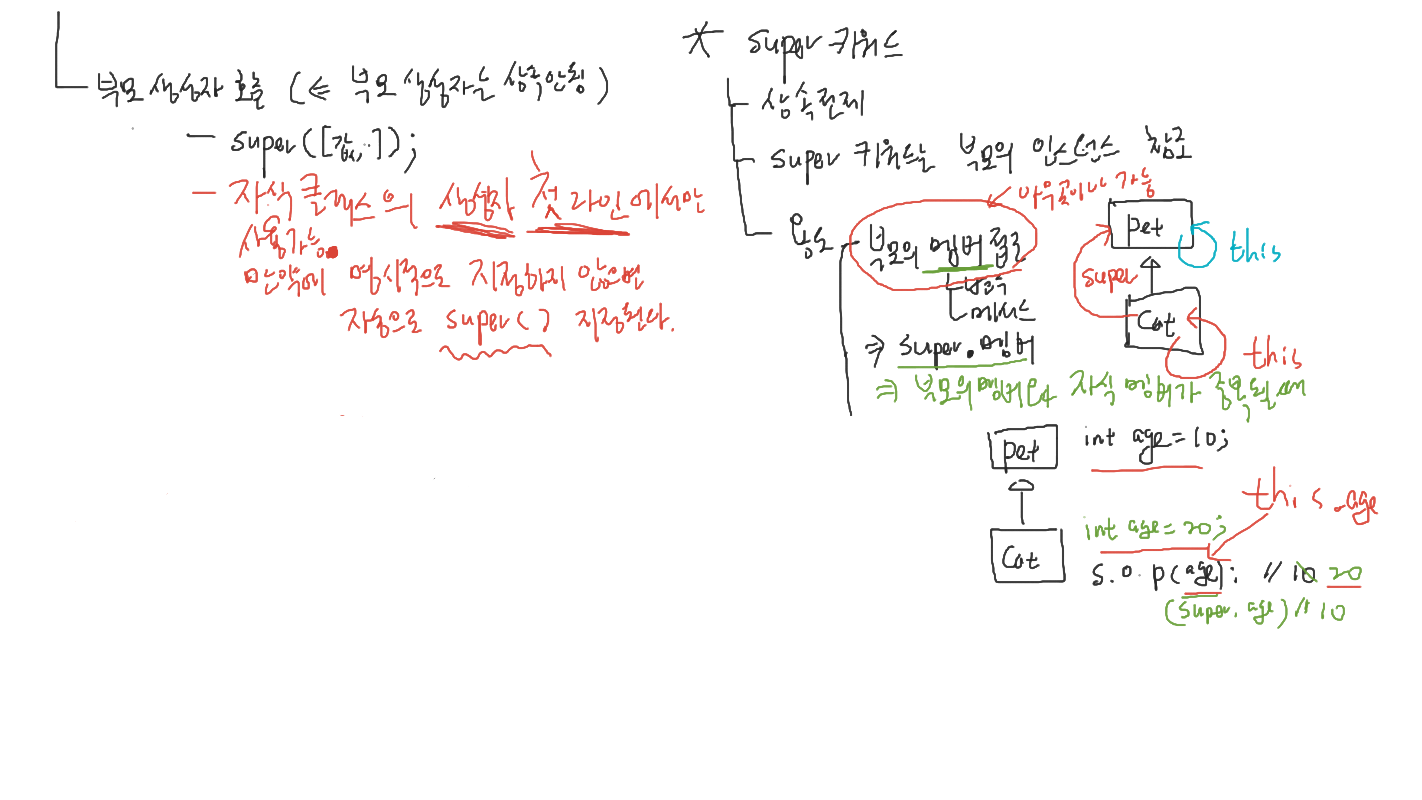 부모 생성자 호출 (⇐ 부모 생성자는 상속안됨)
- super([값,..]);
- 자식클래스의 생성자 첫 라인에서만
사용가능.
만약에 명시적으로 지정하지 않으면
자동으로 super() 지정된다.
* super 키워드
- 상속전제
- super 키워드는 부모의 인스턴스 참조
- 용도 - 부모의 멤버 접근
아무곳이나 가능
변수
메서드
⇒ super.멤버
⇒ 부모의 멤버와 자식 멤버가 중복될때
pet
this
super
Cat
this
pet
int age=10;
this.age
int age=20;
Cat
s.o.p(age); // 10 20
(super.age) // 10